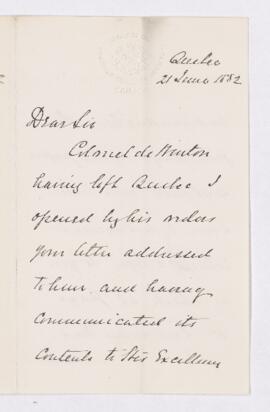 Quebec
21 June 1882
Dear Sir
Colonel de Winton
having left Quebec I
opened by his orders
your letter addressed
to him and having
communicated its
contents to His Excellency